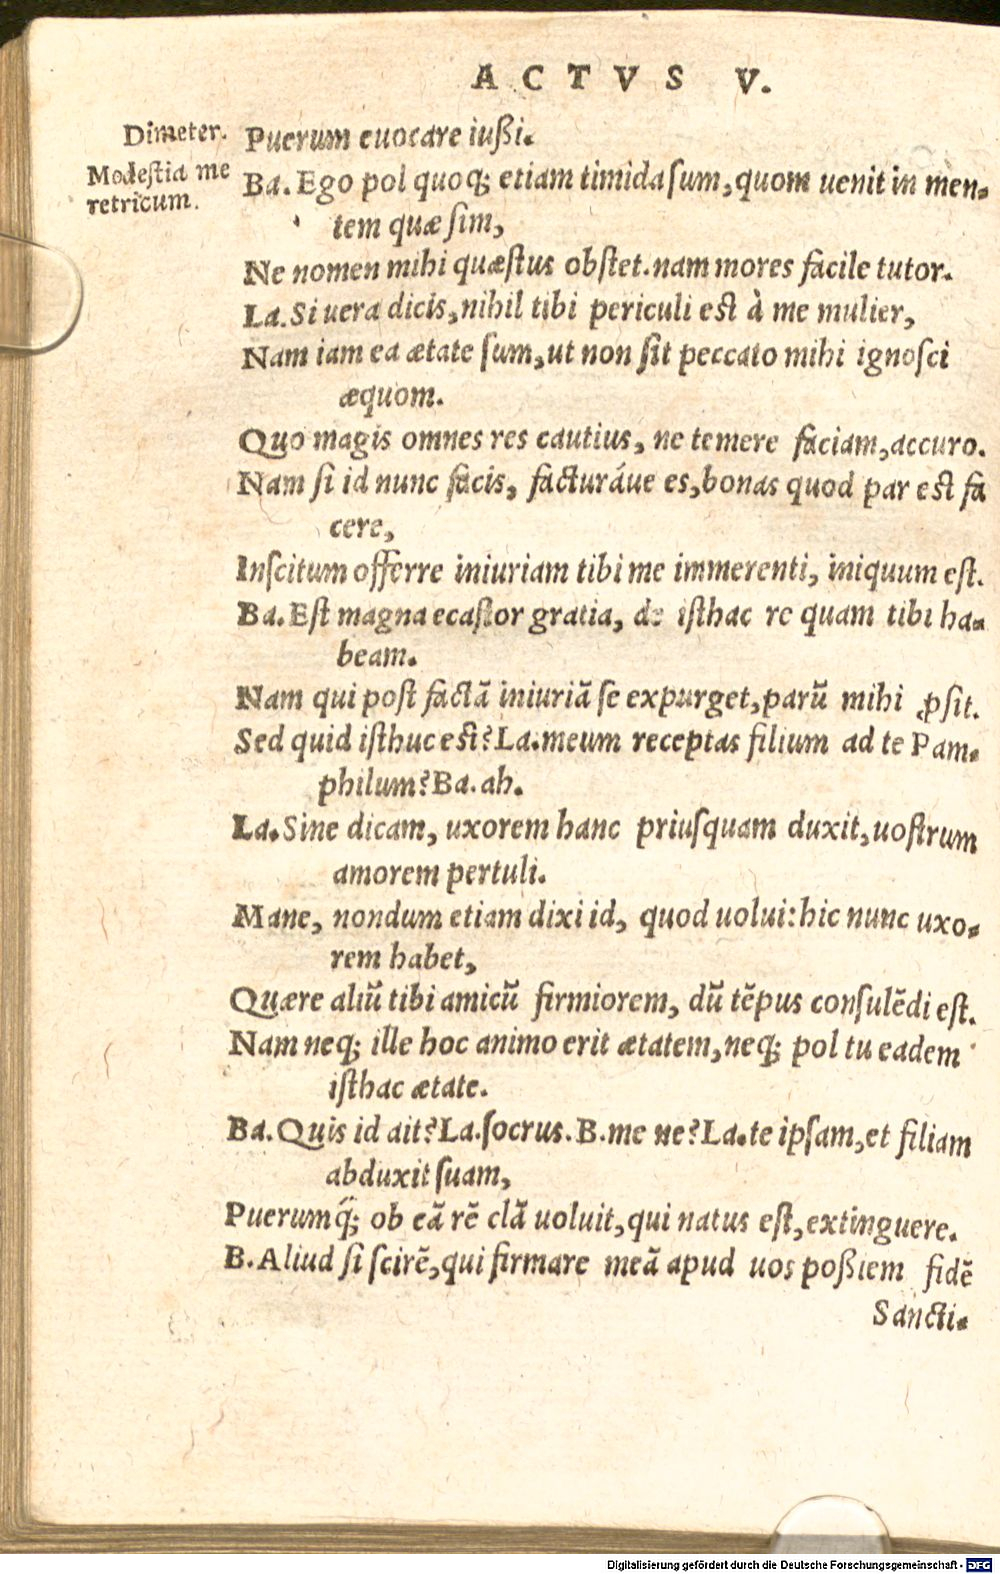 ACTVS V.
Dimeter.
Puerum euocare iußi.
Modestia me
retricum.
Ba. Ego pol quoq; etiam timida sum, quom uenit in men-
tem quæ sim,
Ne nomen mihi quæstus obstet. nam mores facile tutor.
La. Si uera dicis, nihil tibi periculi est à me mulier,
Nam iam ea ætate sum, ut non sit peccato mihi ignosci
æquom.
Quo magis omnes res cautius, ne temere faciam, accuro.
Nam si id nunc facis, facturáue es, bonas quod par est fa
cere,
Inscitum offerre iniuriam tibi me immerenti, iniquum est.
Ba. Est magna ecastor gratia, de isthac re quam tibi ha-
beam.
Nam qui post factā iniuriā se expurget, parū mihi ꝓsit.
Sed quid isthuc est? La. meum receptas filium ad te Pam-
philum? Ba. ah.
La. Sine dicam, uxorem hanc priusquam duxit, uostrum
amorem pertuli.
Mane, nondum etiam dixi id, quod uolui: hic nunc uxo-
rem habet,
Quære aliū tibi amicū firmiorem, dū tēpus consulēdi est.
Nam neq; ille hoc animo erit ætatem, neq; pol tu eadem
isthac ætate.
Ba. Quis id ait? La. socrus. B. me ne? La. te ipsam, et filiam
abduxit suam,
Puerumq́; ob eā rē clā uoluit, qui natus est, extinguere.
B. Aliud si scirē, qui firmare meā apud uos poßiem fidē
Sancti-
Digitalisierung gefördert durch die Deutsche Forschungsgemeinschaft - DFG